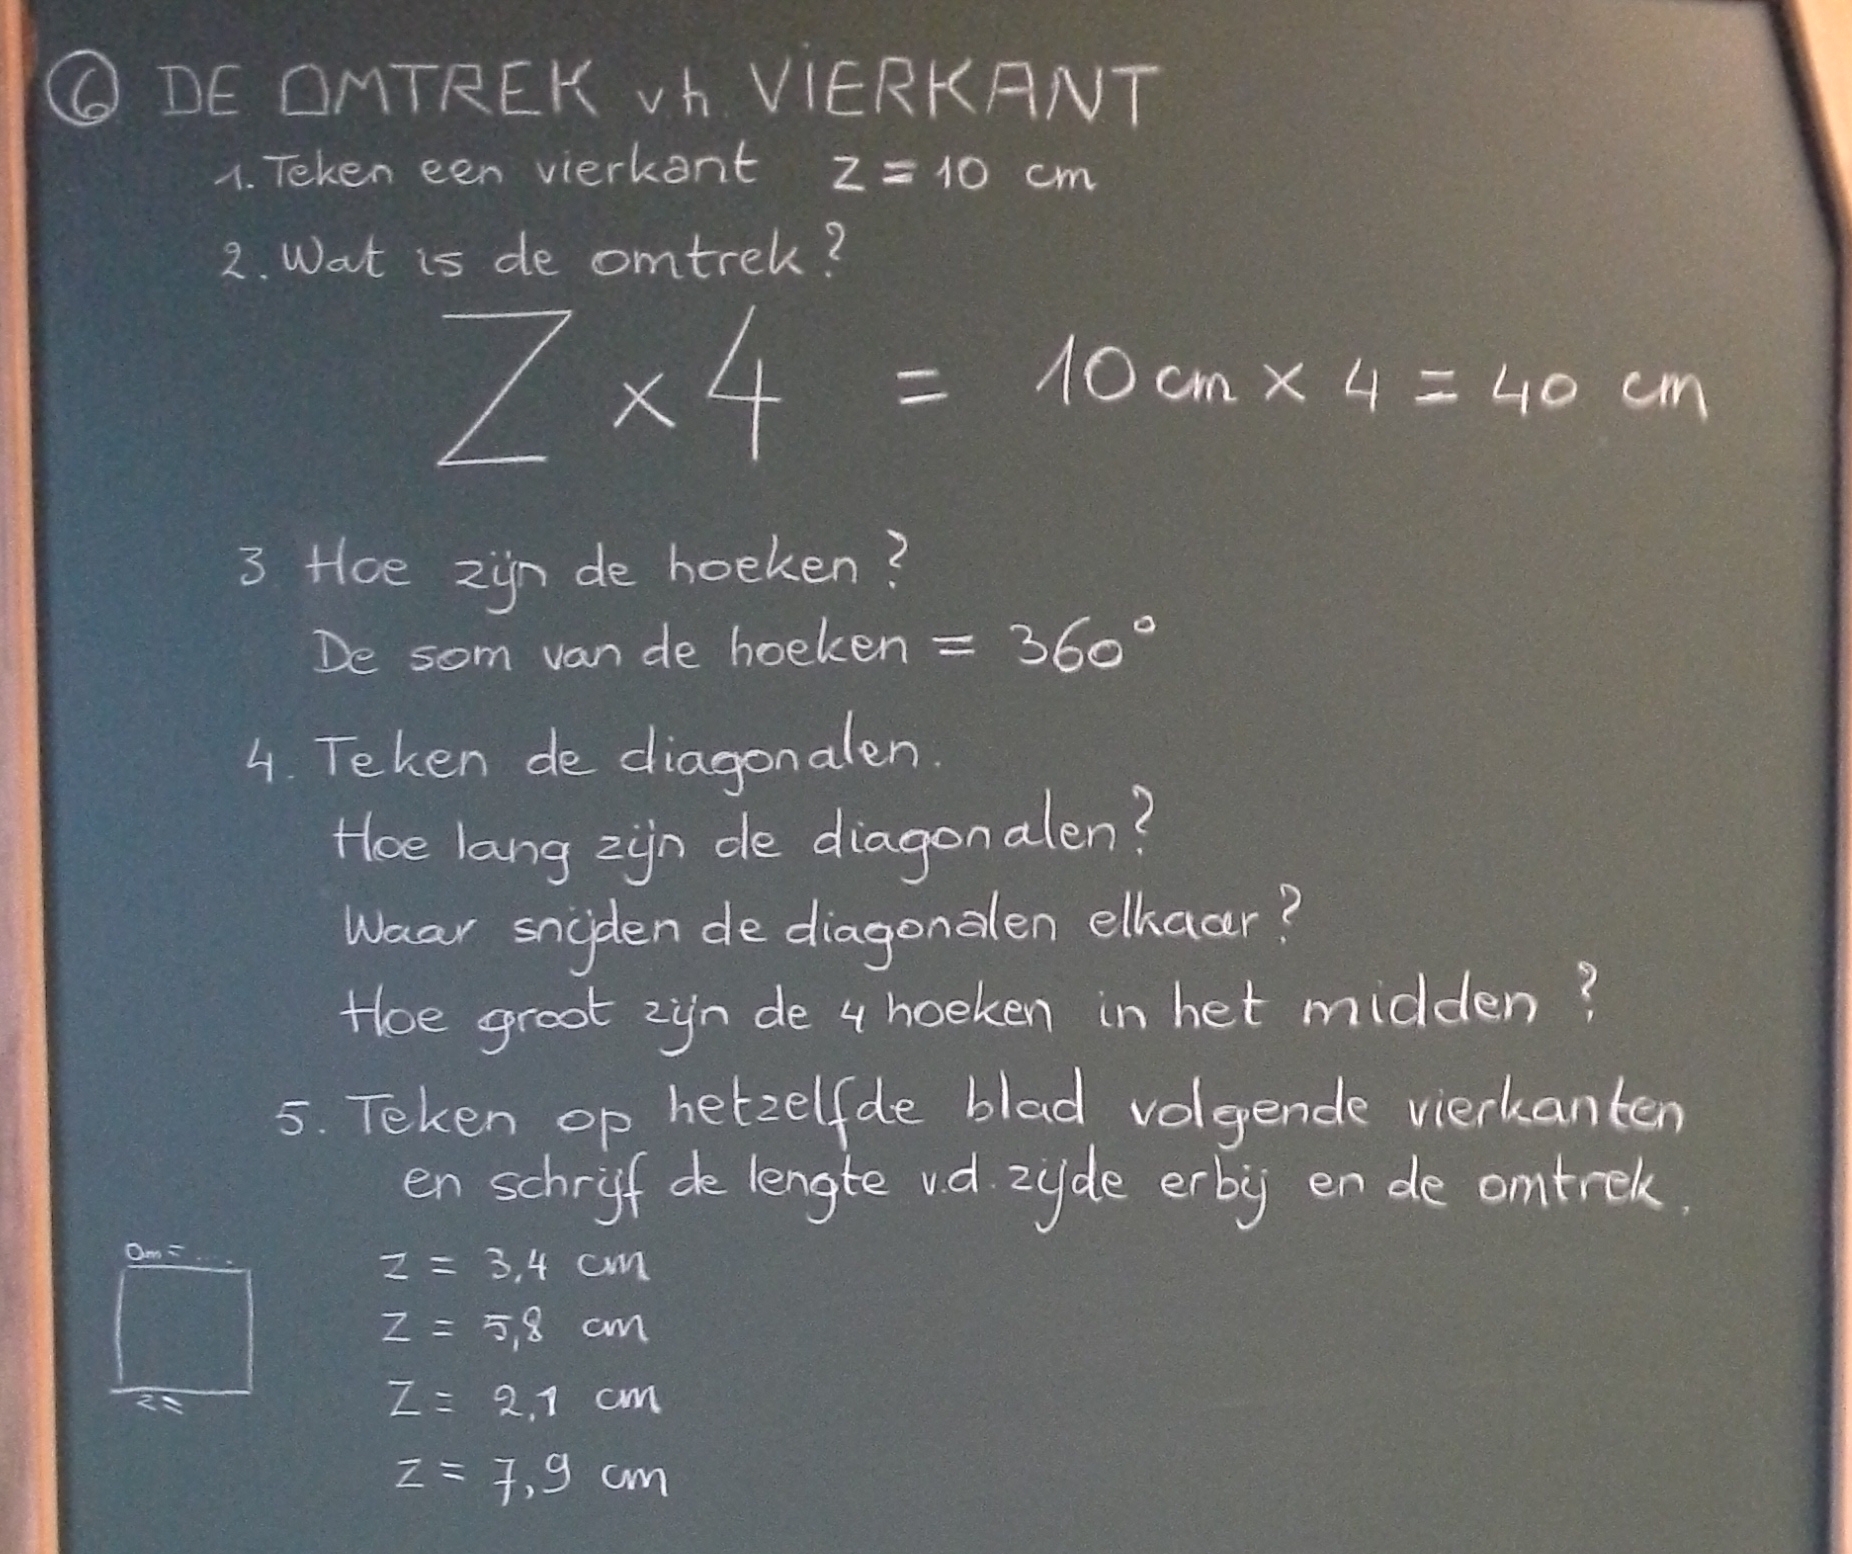 6 DE OMTREK v.h. VIERKANT
1. Teken een vierkant z = 10 cm
2. Wat is de omtrek?
Z x 4 = 10 cm x 4 = 40 cm
3 Hoe zijn de hoeken?
De som van de hoeken = 360°
4. Teken de diagonalen.
Hoe lang zijn de diagonalen?
Waar snijden de diagonalen elkaar?
Hoe groot zijn de 4 hoeken in het midden?
5. Teken op hetzelfde blad volgende vierkanten
en schrijf de lengte v.d. zijde erbij en de omtrek.
Om = ....
z =
z = 3,4 cm
z = 5,8 cm
z = 2,1 cm
z = 7,9 cm